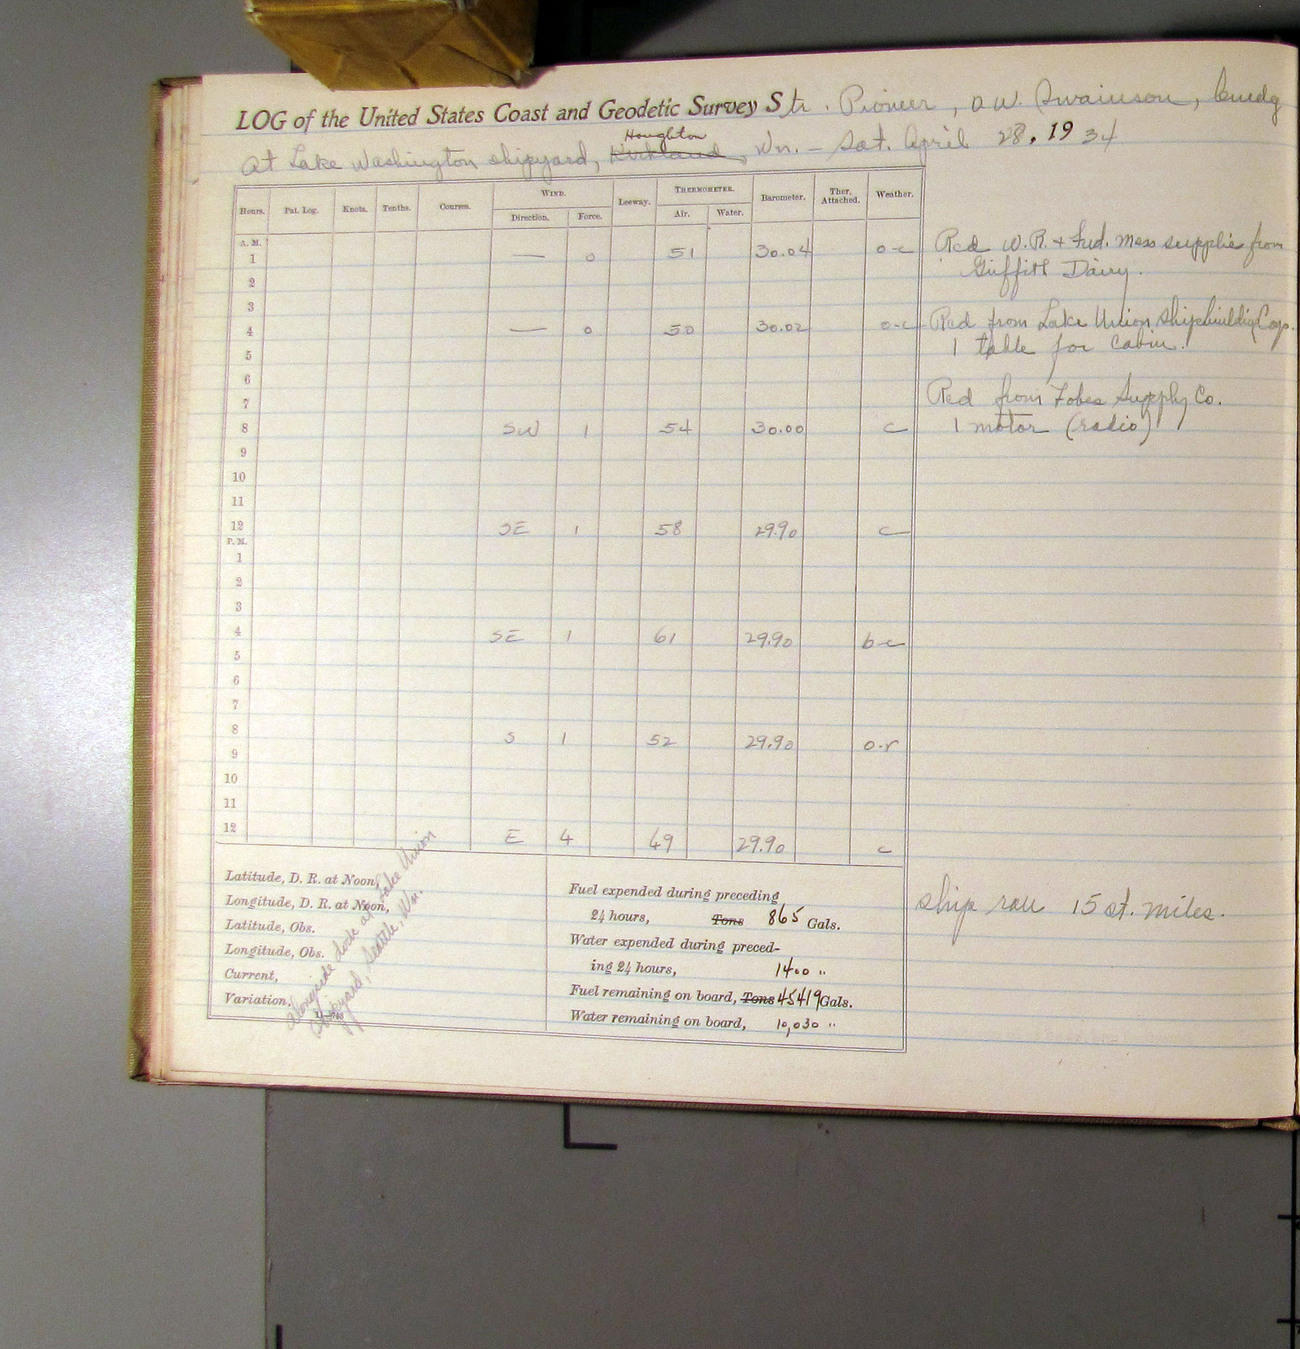 LOG of the United States Coast and Geodetic Survey Str. Pioneer, O.W. Swainson, Comdg
Houghton
At Lake Washington shipyard, Kirkland, Wn. - Sat. April 28, 1934
Hours. Pat. Log. Knots. Tenths. Courses. WIND. Leeway. THERMOMETER. Barometer. Ther. Attached. Weather.
Direction. Force. Air. Water.
A. M.
1 — 0 51 30.04 o-c
2
3
4 — 0 50 30.02 o-c
5
6
7
8 SW 1 54 30.00 c
9
10
11
12 SE 1 58 29.90 c
P. M.
1
2
3
4 SE 1 61 29.90 b-c
5
6
7
8 S 1 52 29.90 o-r
9
10
11
12 E 4 49 29.90 c
Rcd W.R. & Fwd. Mess supplies from
Griffith Dairy.
Rcd from Lake Union Shipbuilding Corp.
1 table for Cabin.
Rcd from Fobes Supply Co.
1 motor (radio)
Ship ran 15 st. miles.
Latitude, D. R. at Noon,
Longitude, D. R. at Noon,
Latitude, Obs.
Longitude, Obs.
Current,
Variation.
alongside dock at Lake Union
Shipyard, Seattle, Wn.
Fuel expended during preceding
24 hours, Tons 865 Gals.
Water expended during preced-
ing 24 hours, 1400 "
Fuel remaining on board, Tons 45419 Gals.
Water remaining on board, 10,030 "